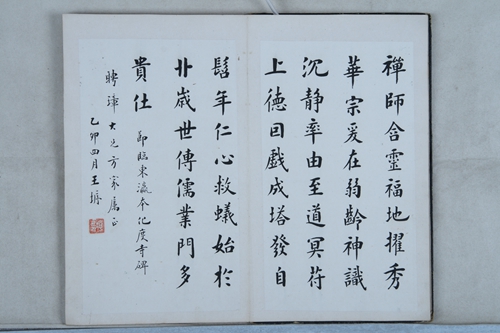 禪師含靈福地擢秀
華宗爰在弱齡神識
沉静率由至道冥符
上德因戲成塔發自
髫年仁心救蟻始於
卝歲世傳儒業門多
貴仕
節臨東瀛本化度寺碑
聘璋大兄方家屬正
乙卯四月王